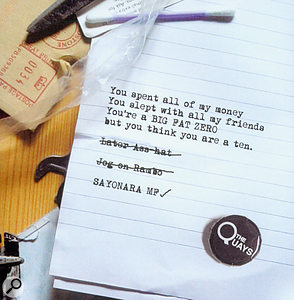 You spent all of my money
You slept with all my friends
You're a BIG FAT ZERO
but you think you are a ten.
Later Ass-hat
Jog on Rambo
SAYONARA MF✓
THE
QUAYS
0034